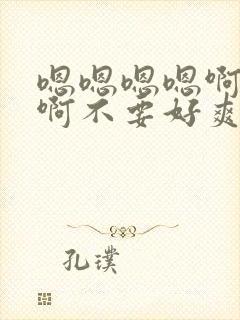 嗯嗯嗯嗯啊
啊不要好爽
孔璞